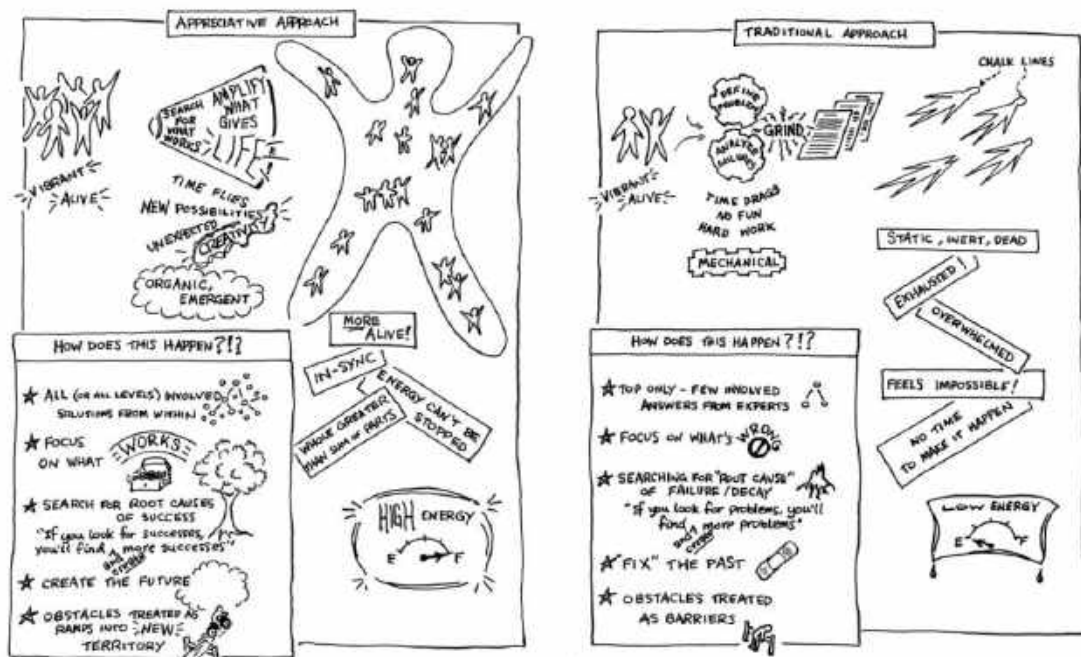 APPRECIATIVE APPROACH
SEARCH
FOR
WHAT
WORKS
AMPLIFY
WHAT
GIVES
LIFE
VIBRANT
ALIVE
TIME FLIES
NEW POSSIBILITIES
UNEXPECTED
CREATIVITY
ORGANIC,
EMERGENT
MORE
ALIVE!
IN-SYNC
ENERGY CAN'T BE
STOPPED
WHOLE GREATER
THAN SUM OF PARTS
HIGH ENERGY
E F
HOW DOES THIS HAPPEN?!?
ALL (OR ALL LEVELS) INVOLVED
SOLUTIONS FROM WITHIN
FOCUS
ON WHAT
WORKS
SEARCH FOR ROOT CAUSES
OF SUCCESS
"If you look for successes,
you'll find more successes"
and
create
CREATE THE FUTURE
OBSTACLES TREATED AS
RAMPS INTO NEW
TERRITORY
TRADITIONAL APPROACH
CHALK LINES
DEFINE
PROBLEM
ANALYZE
FAILURES
GRIND
VIBRANT
ALIVE
TIME DRAGS
NO FUN
HARD WORK
MECHANICAL
STATIC, INERT, DEAD
EXHAUSTED!
OVERWHELMED
FEELS IMPOSSIBLE!
NO TIME
TO MAKE IT HAPPEN
LOW ENERGY
E F
HOW DOES THIS HAPPEN?!?
TOP ONLY - FEW INVOLVED
ANSWERS FROM EXPERTS
FOCUS ON WHAT'S WRONG
SEARCHING FOR "ROOT CAUSE"
OF FAILURE/DECAY
"If you look for problems, you'll
find more problems"
and
create
"FIX" THE PAST
OBSTACLES TREATED
AS BARRIERS